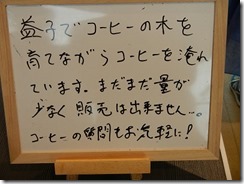 益子でコーヒーの木を
育てながらコーヒーを淹れ
ています。まだまだ量が
少なく販売は出来ません…。
コーヒーの質問もお気軽に!